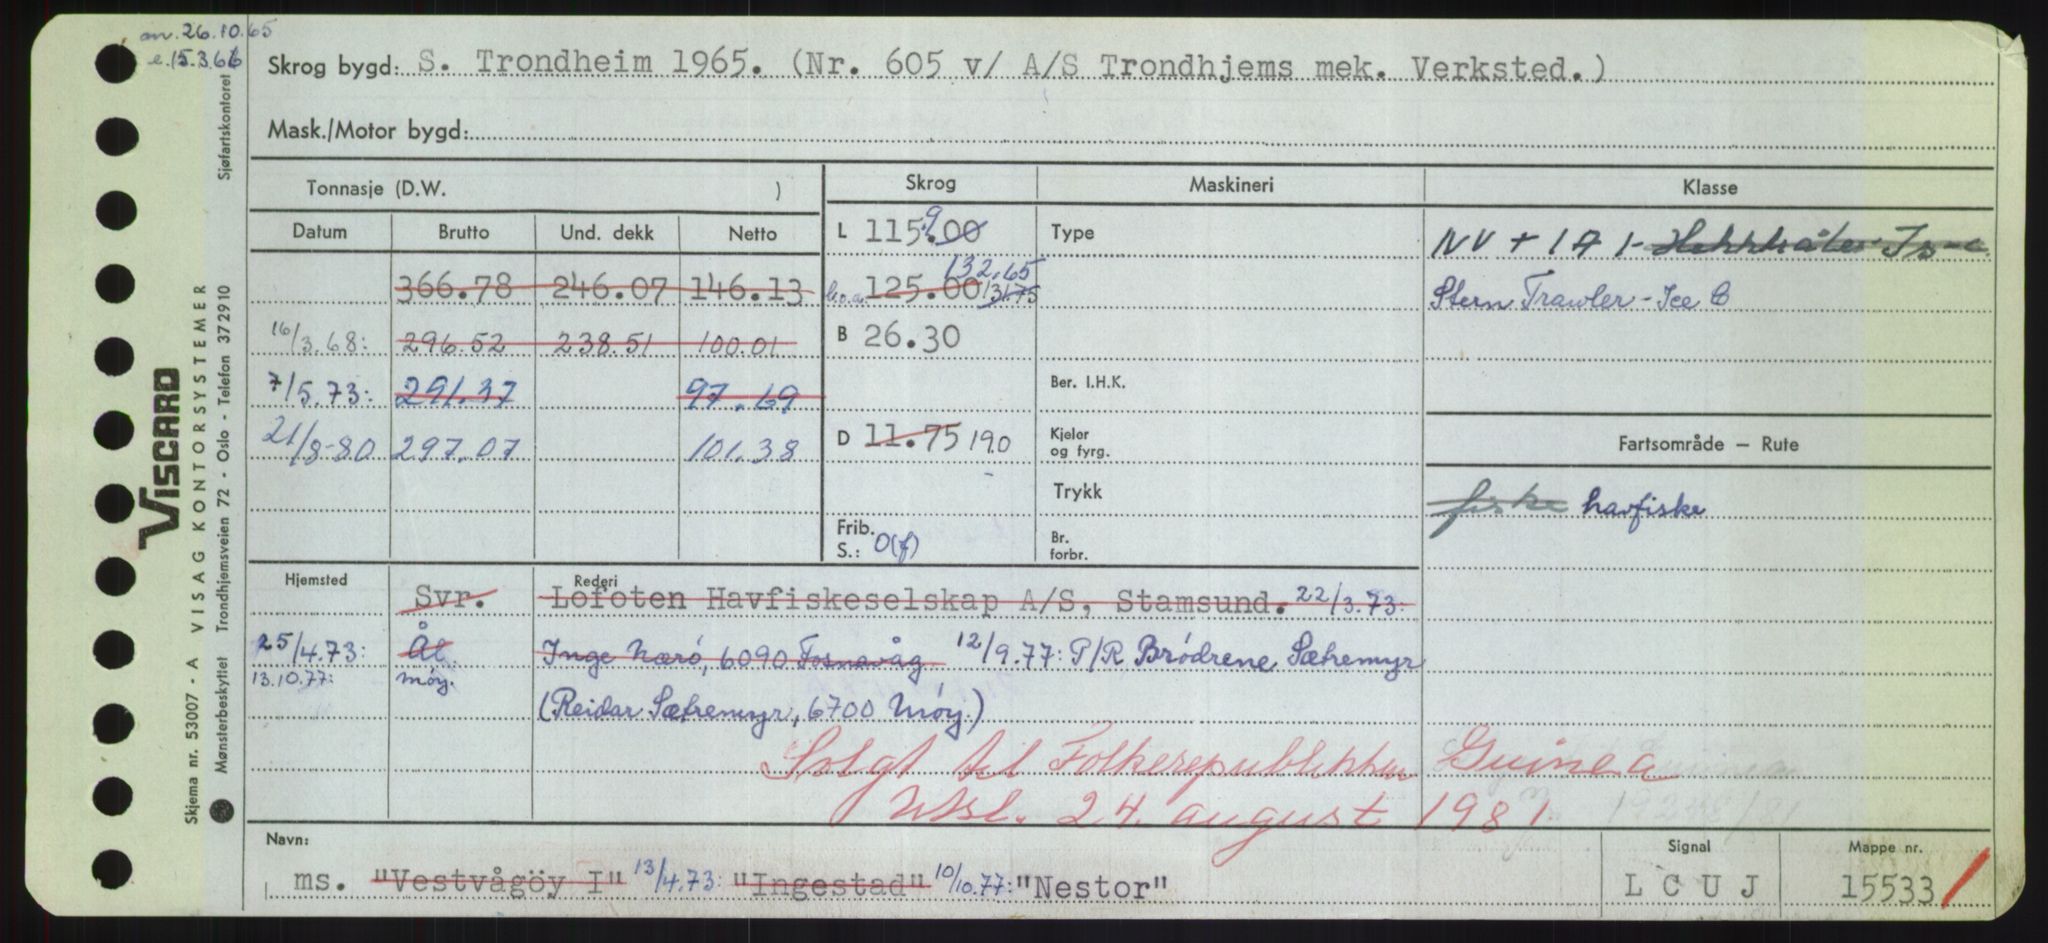 an. 26.10.65
e. 15.3.66
Skrog bygd: S. Trondheim 1965. (Nr. 605 v/ A/S Trondhjems mek. Verksted.)
Mask./Motor bygd:
Tonnasje (D.W. ) Skrog Maskineri Klasse
Datum Brutto Und. dekk Netto L 115.00 9 Type NV + 1A1- Hekktråler Is-C
366.78 246.07 146.13 l.o.a. 125.00 131.75 132.65 Stern Trawler - Ice C
16/3.68: 296.52 238.51 100.01 B 26.30
7/5.73: 291.37 97.69 Ber. I.H.K.
21/8-80 297.07 101.38 D 11.75 190 Kjeler og fyrg. Fartsområde – Rute
Trykk fiske havfiske
Frib. S.: 0(f) Br. forbr.
Hjemsted Rederi
Svr. Lofoten Havfiskeselskap A/S, Stamsund. 22/3.73:
25/4.73: Ål Inge Nærö, 6090 Fosnavåg 12/9.77: P/R Brödrene Sætremyr
13.10.77: Møy. (Reidar Sætremyr, 6700 Møy)
Solgt til Folkerepublikken Guinea
Utsl. 24. august 1981
Navn: Signal Mappe nr.
ms. "Vestvågöy I" 13/4.73: "Ingestad" 10/10.77: "Nestor" LCUJ 15533
VISCARD
Skjema nr. 53007 - A VISAG KONTORSYSTEMER
Mønsterbeskyttet Trondhjemsveien 72 - Oslo - Telefon 372910 Sjøfartskontoret